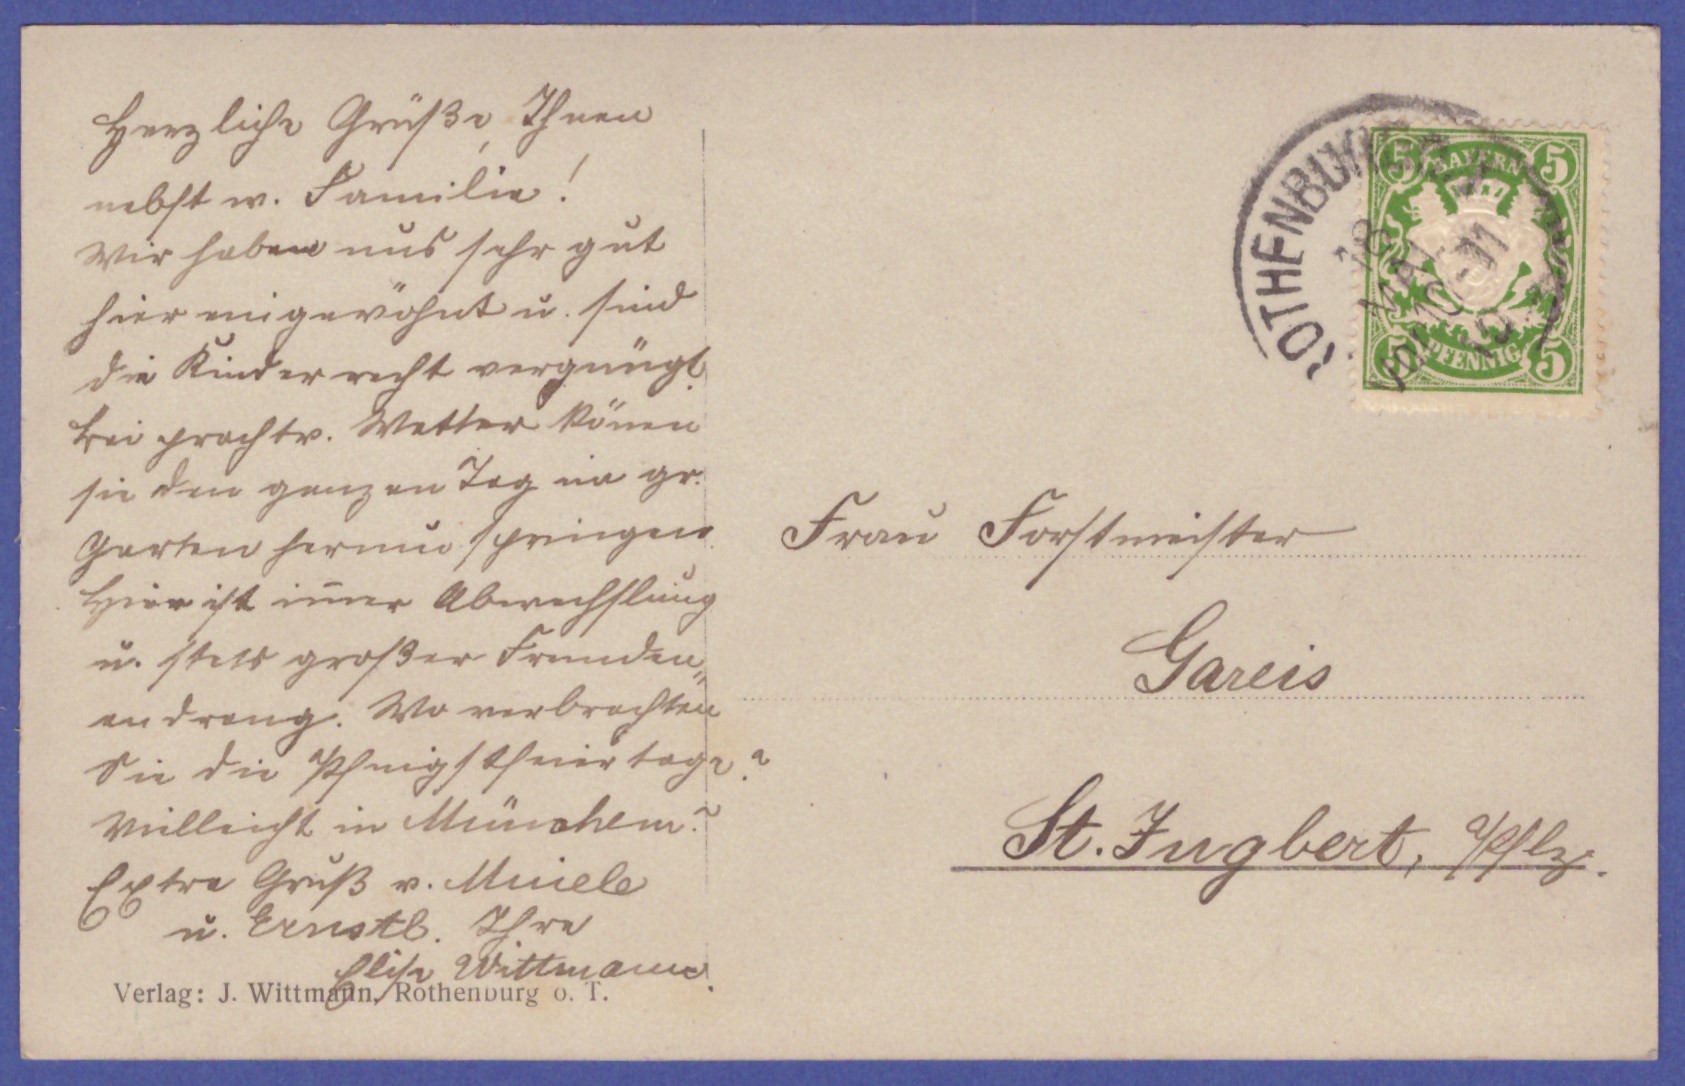 Herzliche Grüße, Ihnen
nebst w. Familie!
Wir haben uns sehr gut
hier eingewöhnt u. sind
die Kinder recht vergnügt.
bei prachtv. Wetter könen
sie den ganzen Tag im gr.
Garten herum springen.
Hier ist im̄er Abwechslung
u. stets großer Fremden„
andrang. Wo verbrachten
Sie die Pfingstfeiertage?
Vielleicht in München?
Extra Gruß v.
u. Ernstl. Ihre
Elise Wittmann.
Verlag: J. Wittmann, Rothenburg o. T.
ROTHENBURG
18
MAI
VOR 10-11
BAYERN
5 5
PFENNIG
5 5
Frau Forstmeister
Gareis
St. Ingbert, Pflz.